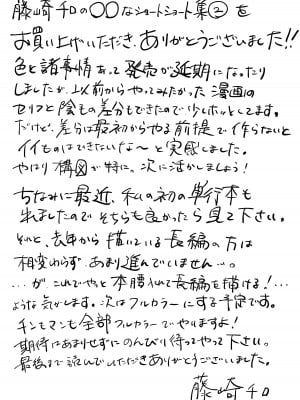 藤崎チロの〇〇なショートショート集②を
お買い上げいただき、ありがとうございました!!
色々諸事情あって発売が延期になったり
しましたが、以前からやってみたかった漫画の
セリフと陰毛の差分もできたので少しホッとしてます。
だけど、差分は最初からやる前提で作らないと
イイものはできないな〜と実感しました。
やはり構図が特に。次に活かしましょう!
ちなみに最近、私の初の単行本も
出ましたのでそちらも良かったら見て下さい。
そいと、去年から描いている長編の方は
相変わらずあまり進んでいません…。
…が、これでやっと本腰入れて長編を描ける!…
ような気がします。次はフルカラーにする予定です。
チンとマンも全部フルカラーでやいますよ!
期待はあまりせずにのんびり待ってやって下さい。
最後まで読んでいただきありがとうございました。
藤崎チロ